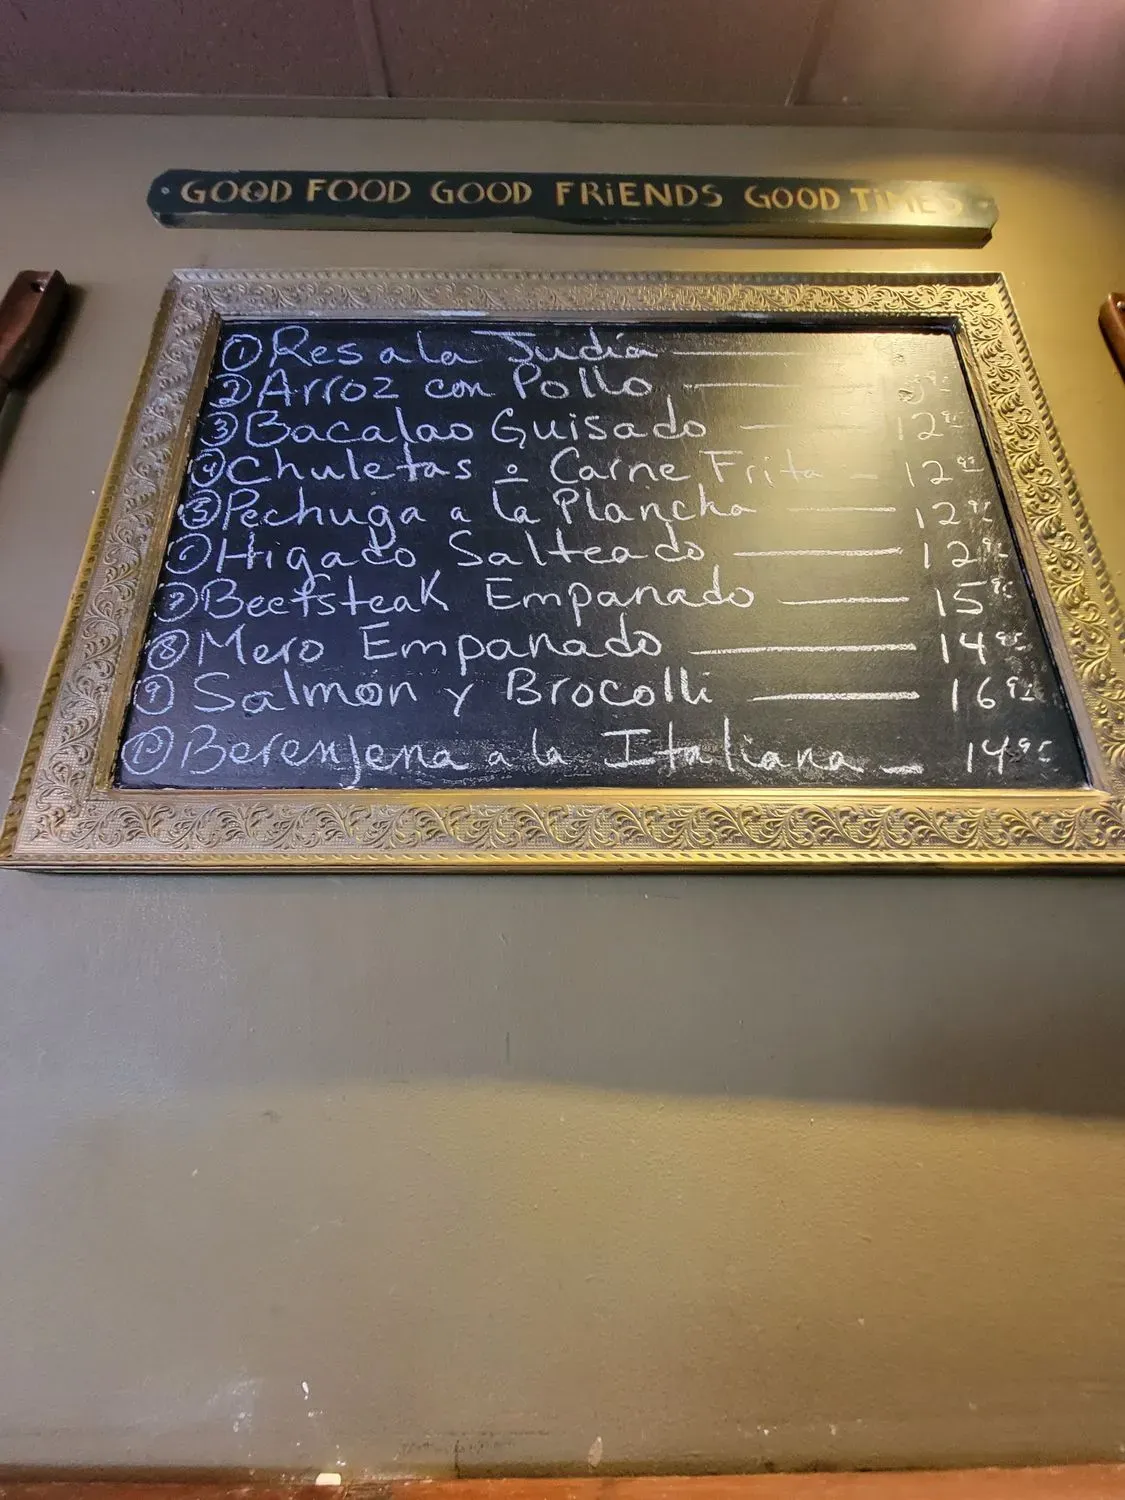 GOOD FOOD GOOD FRIENDS GOOD TIMES
① Res a la Judia
② Arroz con Pollo
③ Bacalao Guisado — 12 95
④ Chuletas o Carne Frita — 12 95
⑤ Pechuga a la Plancha — 12 95
⑥ Higado Salteado — 12 95
⑦ Beefsteak Empanado — 15 95
⑧ Mero Empanado — 14 95
⑨ Salmon y Brocolli — 16 95
⑩ Berenjena a la Italiana — 14 95